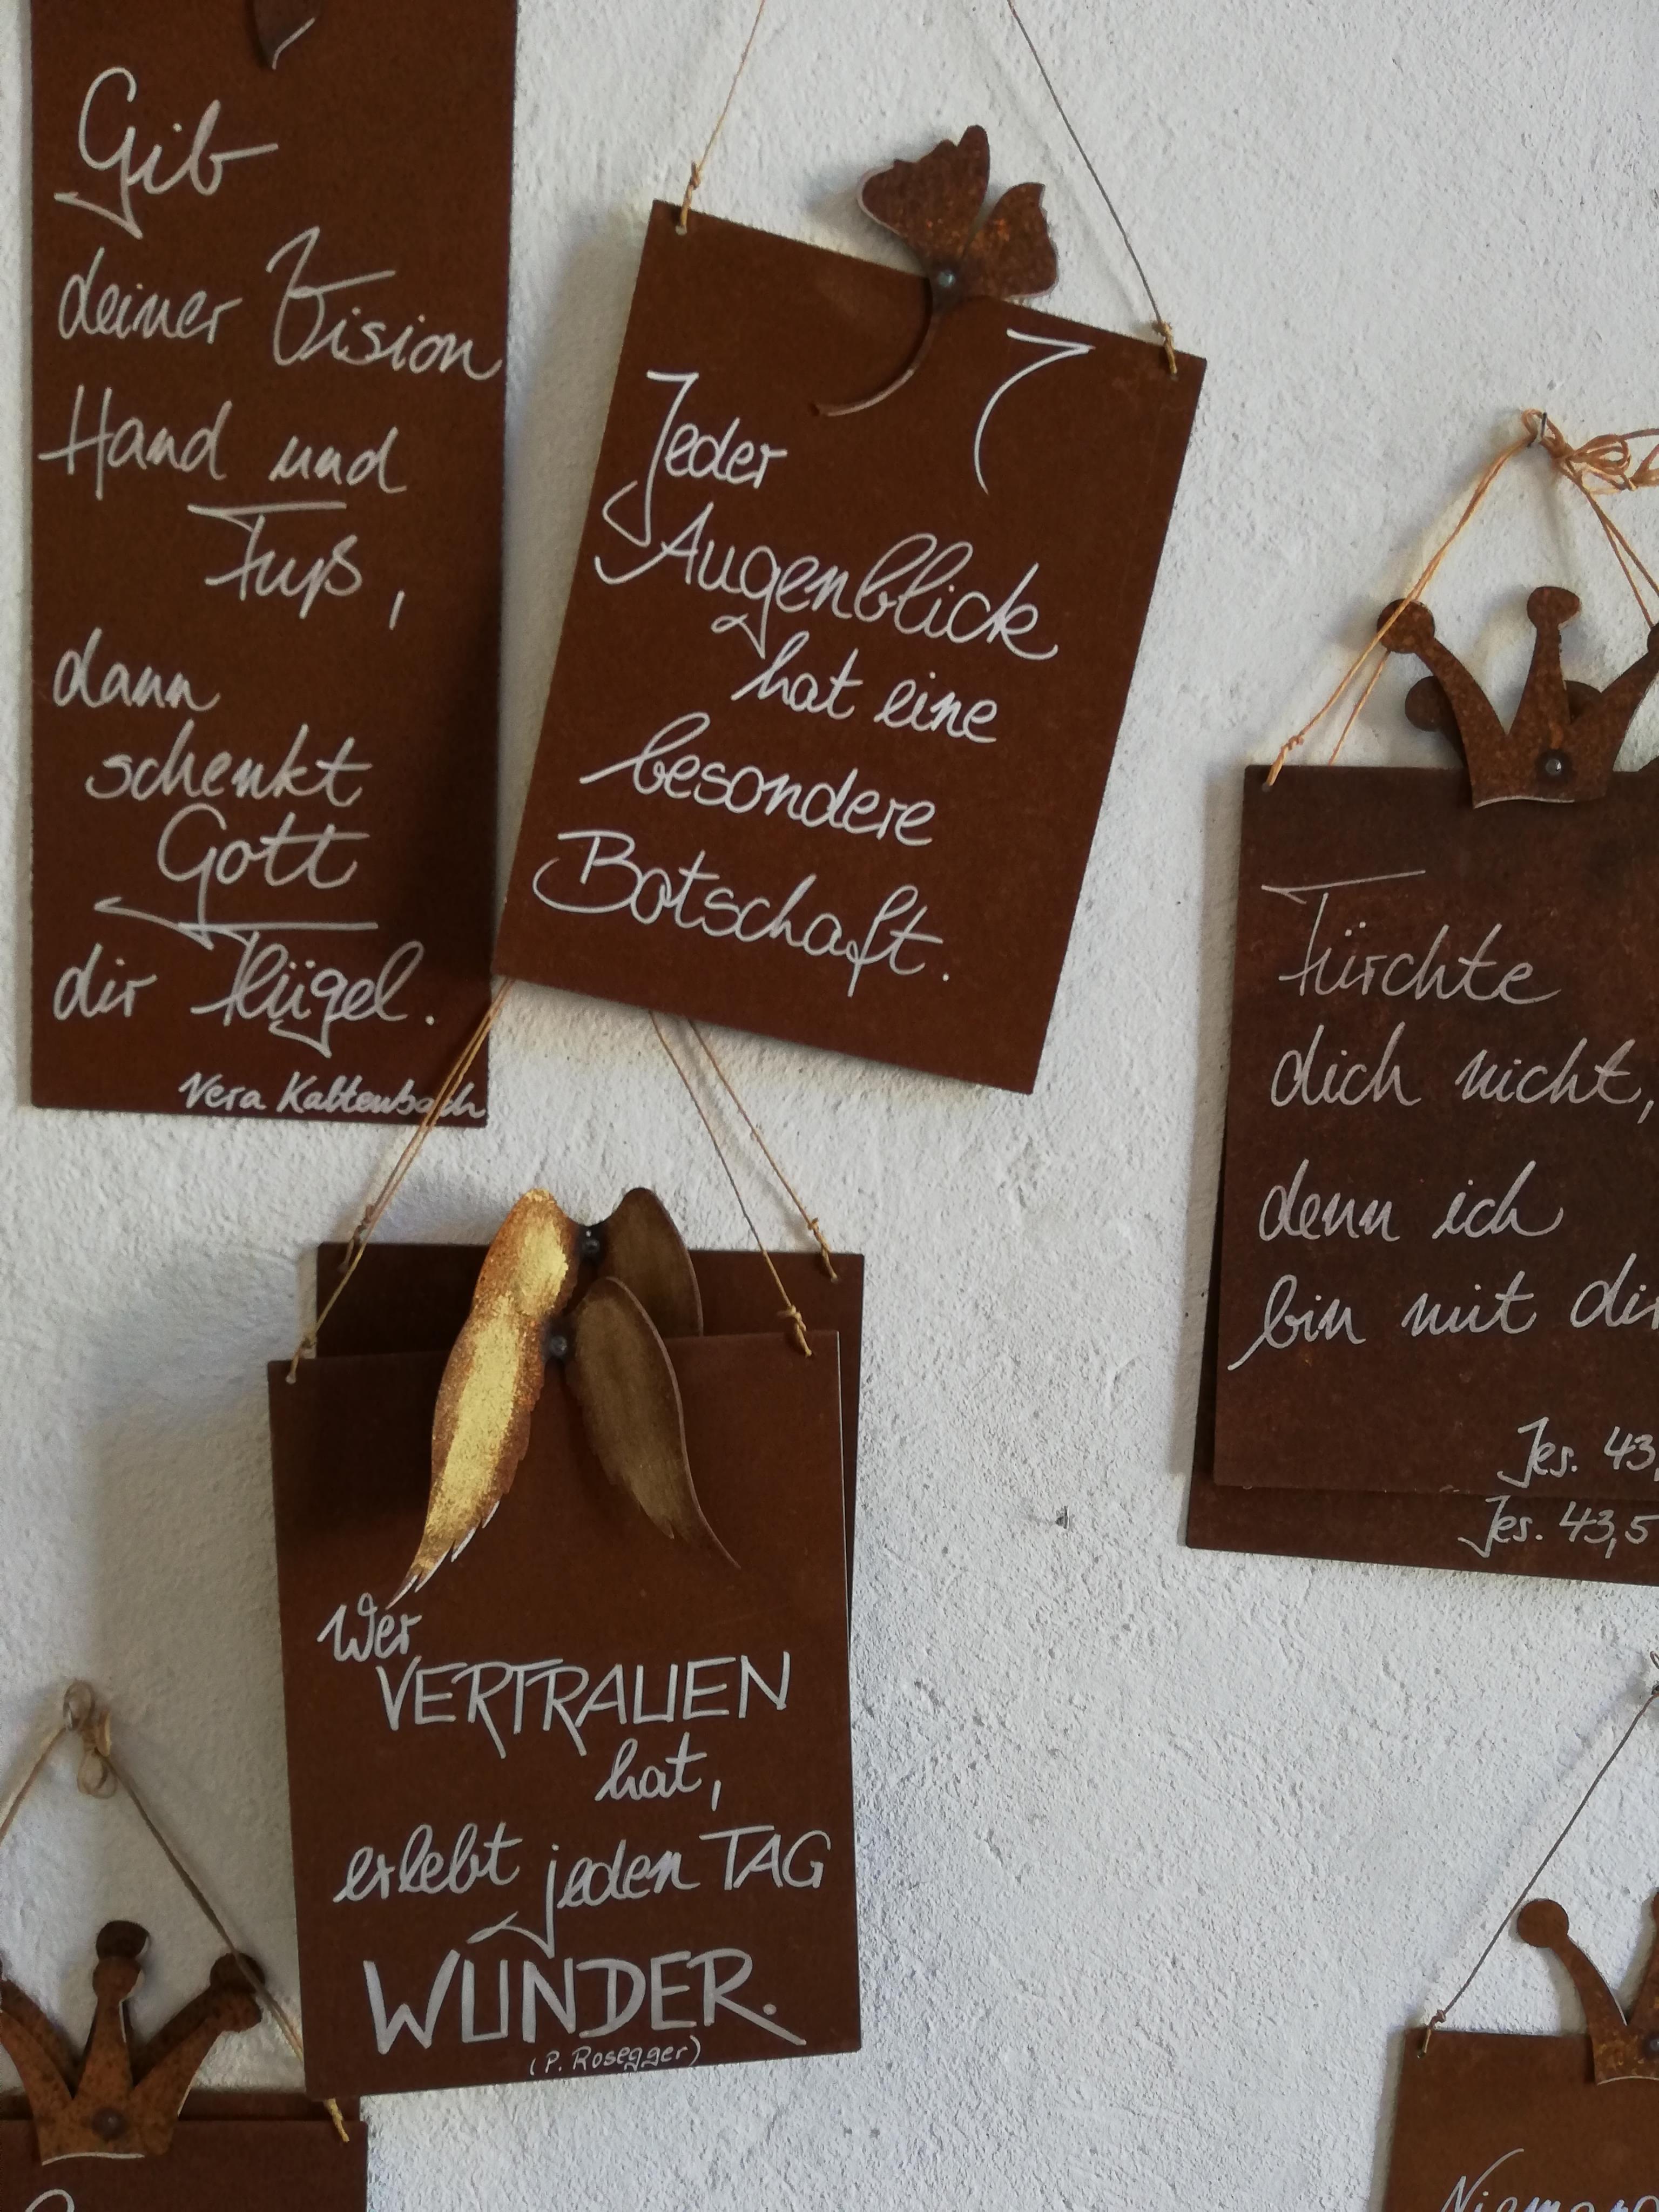 Gib
deiner Vision
Hand und
Fuß,
dann
schenkt
Gott
dir Flügel.
Vera Kaltenbach
Jeder
Augenblick
hat eine
besondere
Botschaft.
Fürchte
dich nicht,
denn ich
bin mit dir
Jes. 43,
Jes. 43,5
Wer
VERTRAUEN
hat,
erlebt jeden TAG
WUNDER.
(P. Rosegger)